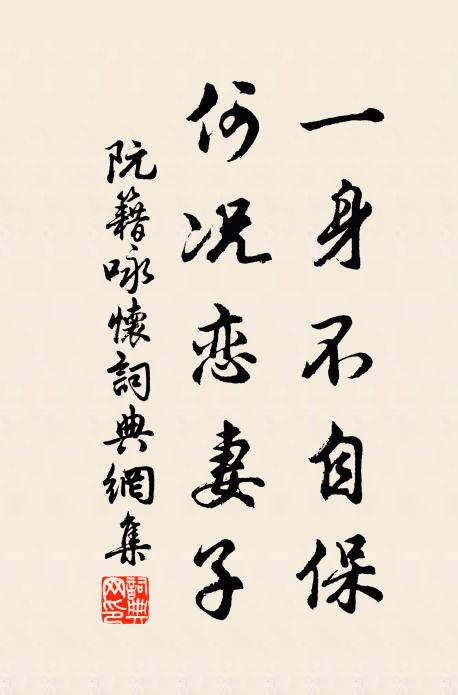 一身不自保
何况恋妻子
阮籍咏懷詞典網集
詞典网印